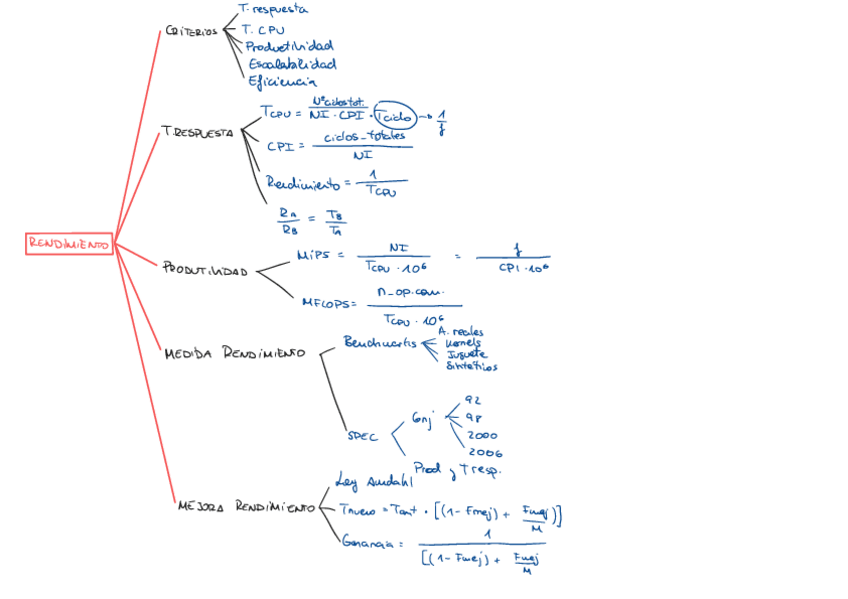 CRITERIOS
T. respuesta
T. CPU
Productividad
Escalabilidad
Eficiencia
T.RESPUESTA
TCPU = Nº ciclos tot. / NI · CPI · Tciclo → 1/f
CPI = ciclos_totales / NI
Rendimiento = 1 / TCPU
RA / RB = TB / TA
RENDIMIENTO
PRODUTIVIDAD
MIPS = NI / TCPU · 10⁶ = f / CPI · 10⁶
MFLOPS = n_op.com. / TCPU · 10⁶
MEDIDA RENDIMIENTO
Benchmarks
A. reales
Kernels
Juguete
Sintéticos
SPEC
Conj
92
98
2000
2006
Prod y T resp.
MEJORA RENDIMIENTO
Ley Amdahl
Tnuevo = Tant · [(1 - Fmej) + Fmej / M)]
Ganancia = 1 / [(1 - Fmej) + Fmej / M